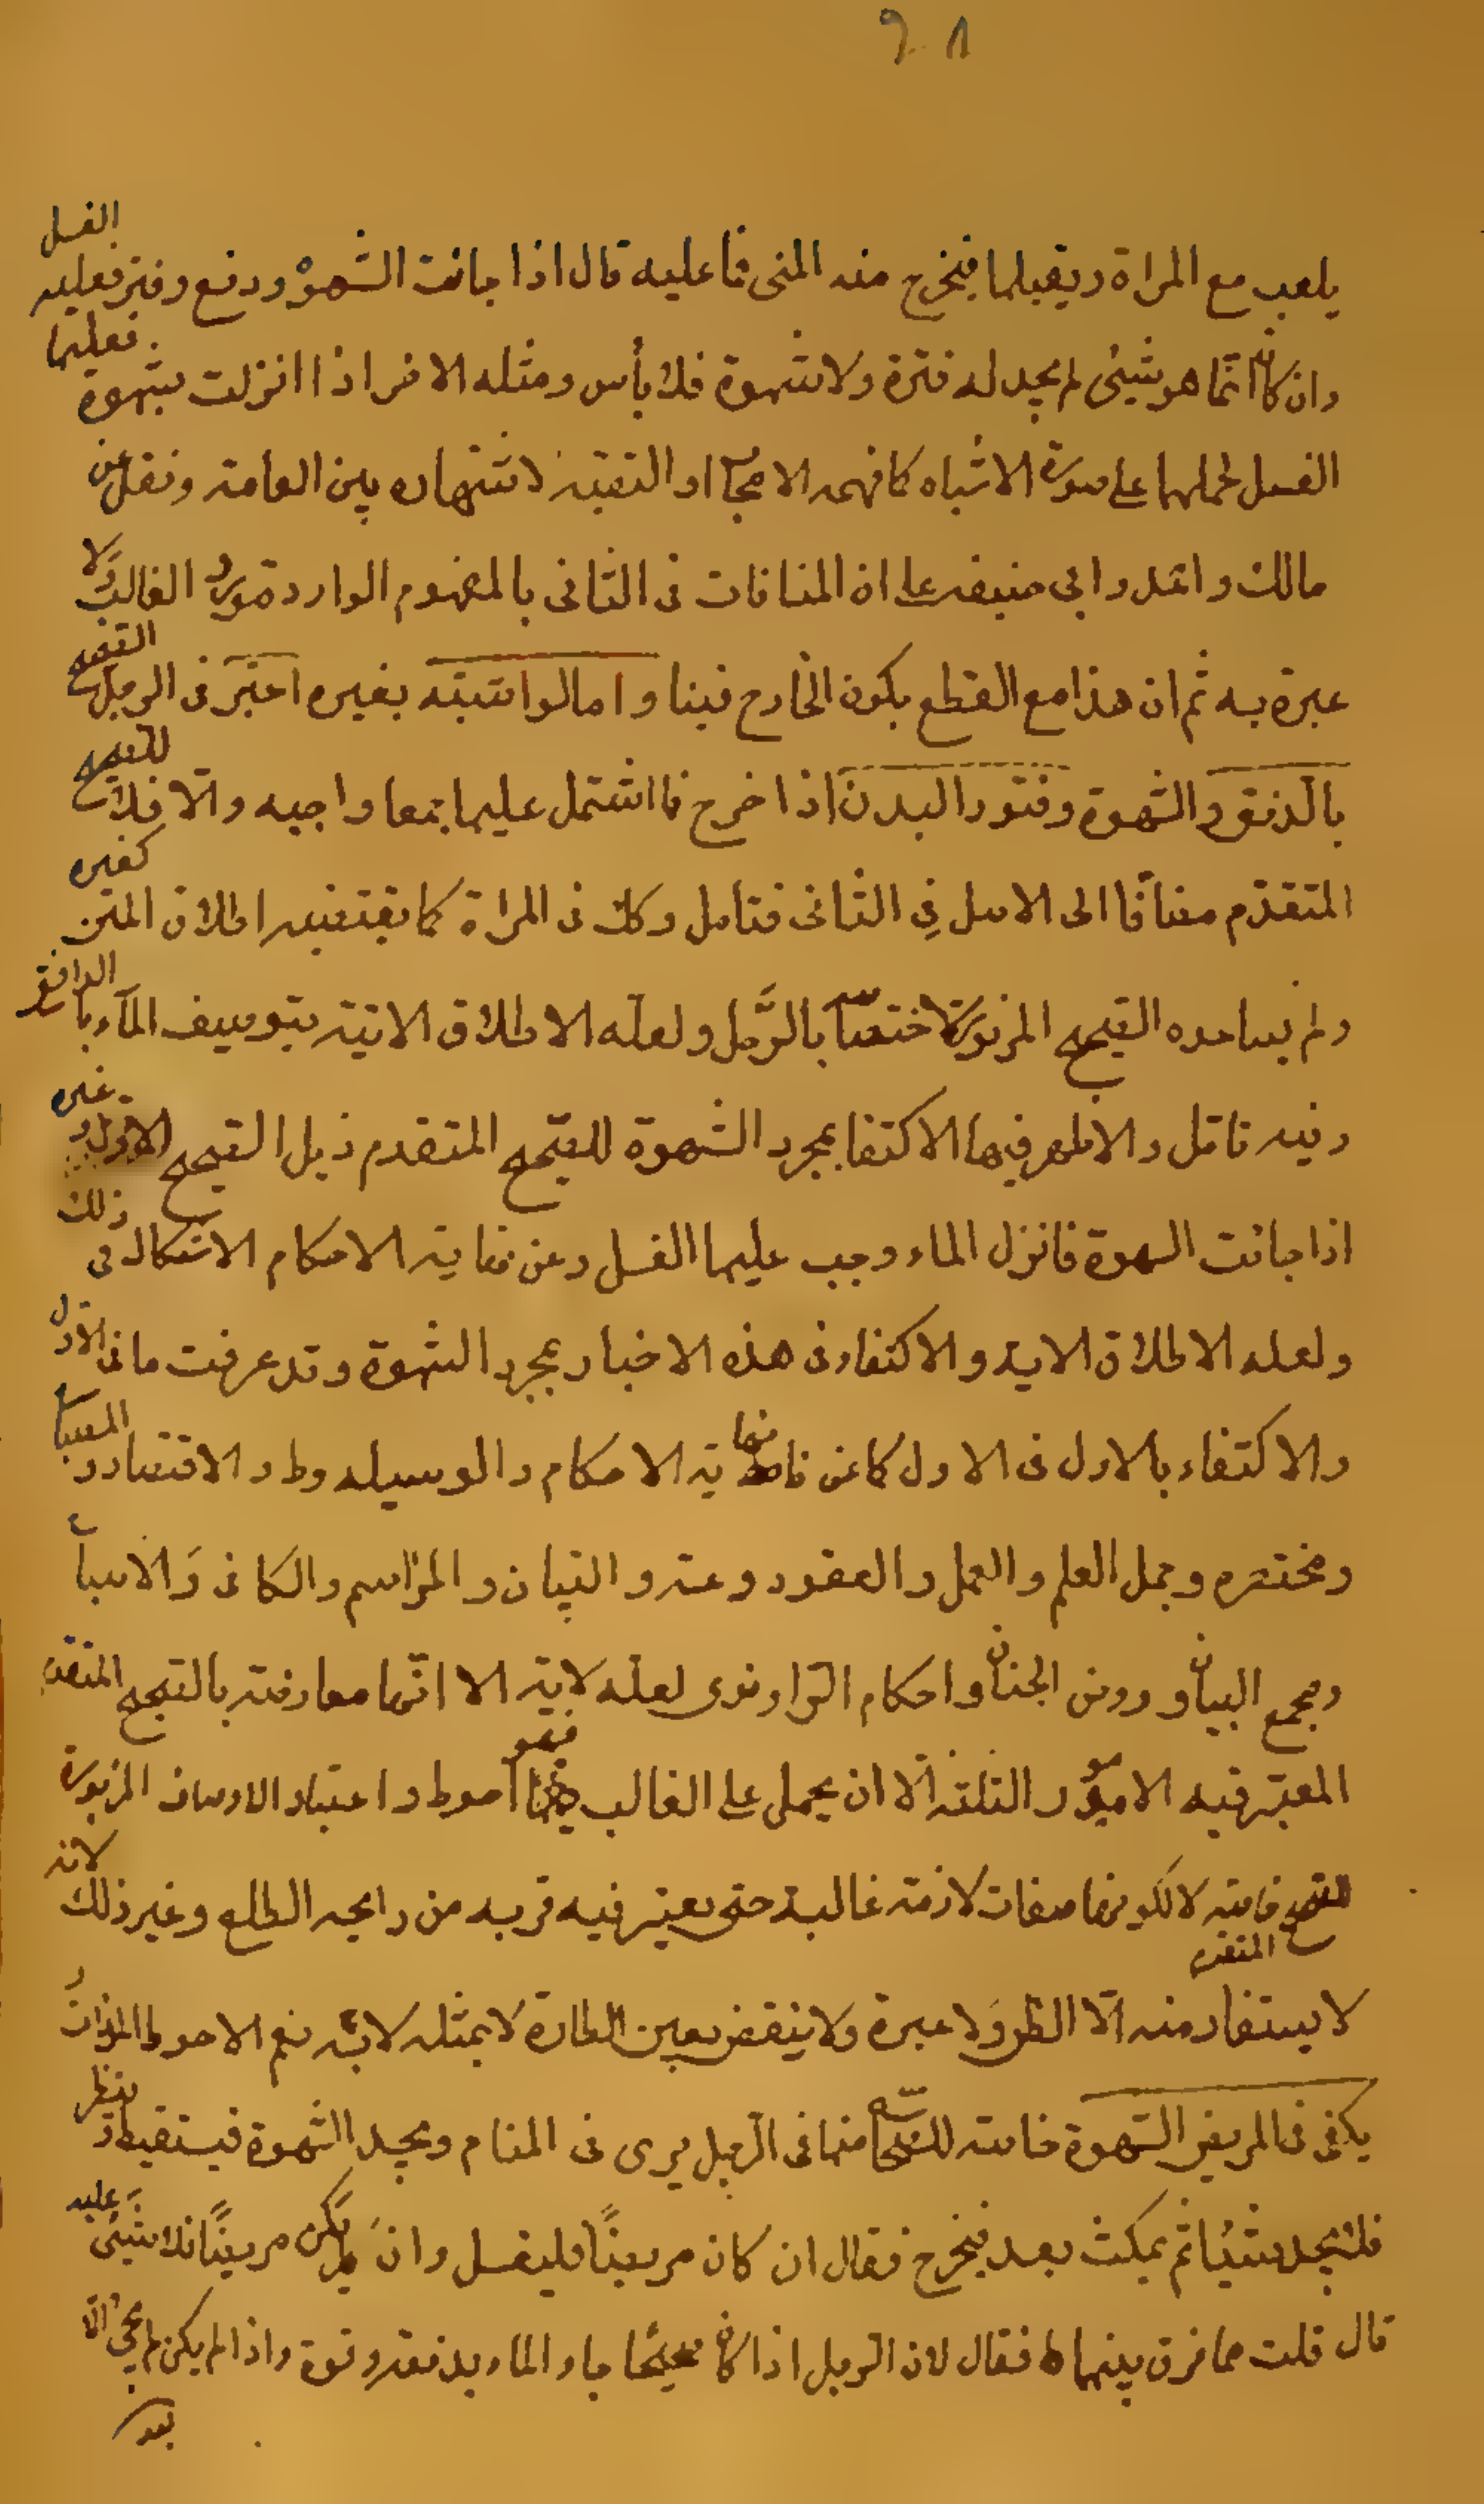 يلعب مع المراة ويقبلها فيخرج منه المنى فما عليه قال اذا جائت الشهوة ودفع وفتر فعليه الغسل
وان كان انما هو شيئى لم يجد له فترة ولا شهوة فلا بأس ومثله الاخر اذا انزلت بشهوة فعليها
الغسل لحملهما على صورة الاشتباه كما فهمه الاصحاب او التقية لاشتهاره بين العامة ونقل عن
مالك واحمد وابى حنيفة على ان المنافات فى الثانى بالمفهوم الوارد مورد الغالب ولا
عبرة به ثم ان هذا مع القطع بكون الخارج منيا واما لو اشتبه بغيره اعتبر فى الرجل الصحيح
بالدفق والشهوة وفتور البدن اذا خرج فما اشتمل عليها جمعا واجبه والا فلا للصحيح
المتقدم مضافا الى الاصل فى الثانى فتامل وكك فى المراة كما يقتضيه اطلاق المتن كغيره
ولم يساعده الصحيح المزبورة لاختصاصه بالرجل ولعله الاطلاق الاتية بتوصيف الماء بالدافق
وفيه تامل والاظهر فيها الاكتفا بمجرد الشهوة للصحيح المتقدم ذيل الصحيح الاول وغيره
اذا جائت الشهوة فانزل الماء وجب عليها الغسل وعن نهاية الاحكام الاشكال فى ذلك
ولعله الاطلاق الاية والاكتفاء فى هذه الاخبار بمجرد الشهوة وقد عرفت ما فى الاول
والاكتفاء بالاول فى الاول كما عن نهاية الاحكام والوسيله وط والاقتصاد والمصباح
ومختصره وجمل العلم والعمل والعقود وعنه والتبيان والمراسم والكافى والاصباح
ومجمع البيان وروض الجنان واحكام الراوندى لعله لاية الا انها معارضة بالصحيح المتقدم
المعتبر فيه الامور الثلثة الا ان يحمل على الغالب فهو احوط واعتبار الاوصاف المزبورة
للصحيح المتقدم خاصة لا لكونها صفات لازمة غالبة حتى يعتبر فيه قربه من رايحه الطلع وغير ذلك لانه
لا يستفاد منه الا الظن ولا عبرة ولا ينقض يقين الطهارة لا بمثله لانه نعم الاحوط المزاد و
يكفى فى المريض الشهوة خاصة للصحاح منها فى الرجل يرى فى المنام ويجد الشهوة فيستيقظ فينظر
فلا يجد شيئا ثم يمكث بعد فيخرج فقال ان كان مريضا فليغسل وان لم يكن مريضا فلا شيئى عليه
قال قلت فما فرق بينهما فقال لان الرجل اذا كان صحيحا جاء الماء بدفعة وقوة واذا لم يكن لم يجئ الا
بعد